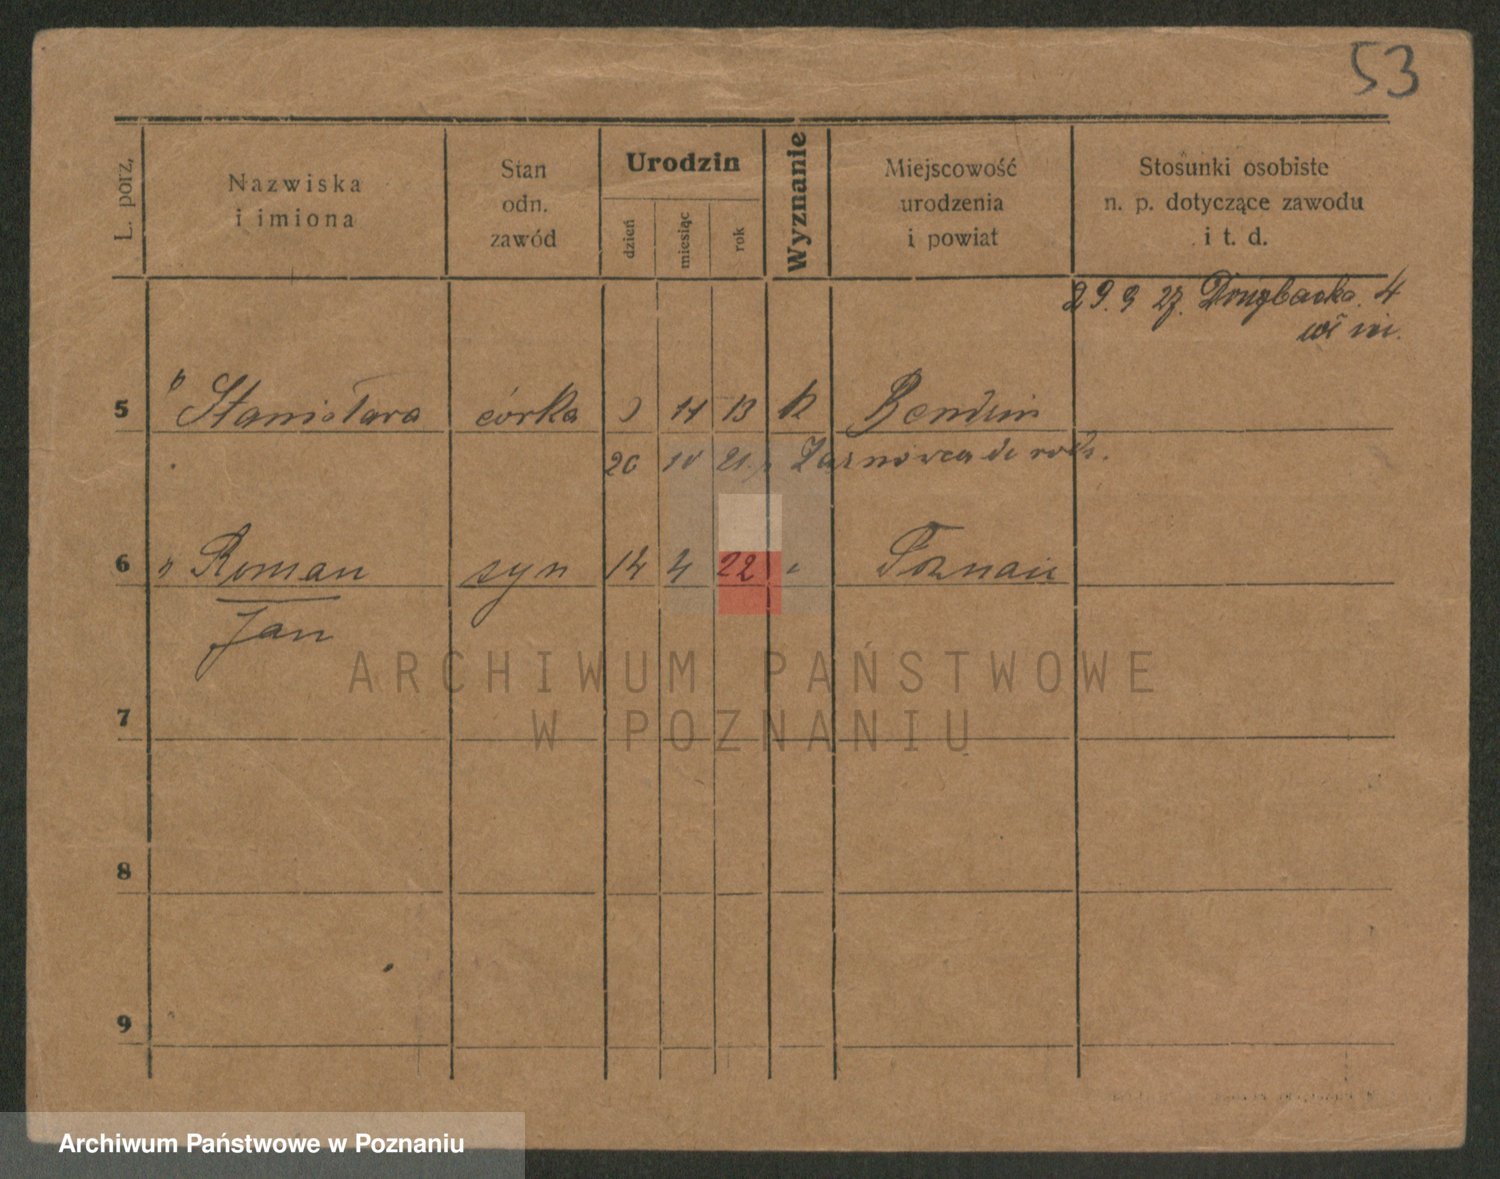 53
L. porz.
Nazwiska
i imiona
Stan
odn.
zawód
Urodzin
dzień
miesiąc
rok
Wyznanie
Miejscowość
urodzenia
i powiat
Stosunki osobiste
n. p. dotyczące zawodu
i t. d.
29. 9 27. 4
5 " Stanisława córka 11 13 k Bendzin
20 10 21
6 " Roman syn 14 4 22 " Poznań
Jan
ARCHIWUM PAŃSTWOWE
W POZNANIU
7
8
9
Archiwum Państwowe w Poznaniu